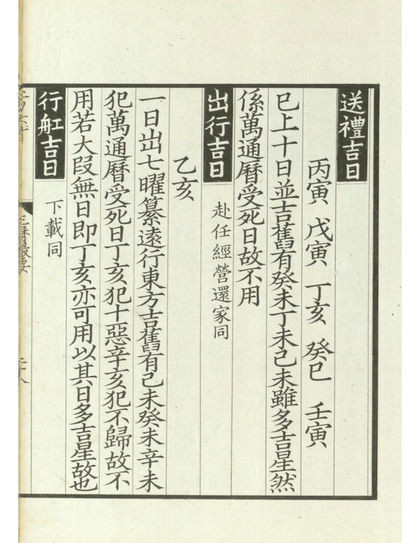 送禮吉日
丙寅 戊寅 丁亥 癸巳 壬寅
已上十日並吉舊有癸未丁未己未雖多吉星然
係萬通曆受死日故不用
出行吉日 赴任經營還家同
乙亥
一日出七曜纂遠行東方吉舊有己未癸未辛未
犯萬通曆受死日丁亥犯十惡辛亥犯不歸故不
用若大段無日即丁亥亦可用以其日多吉星故也
行舡吉日 下載同